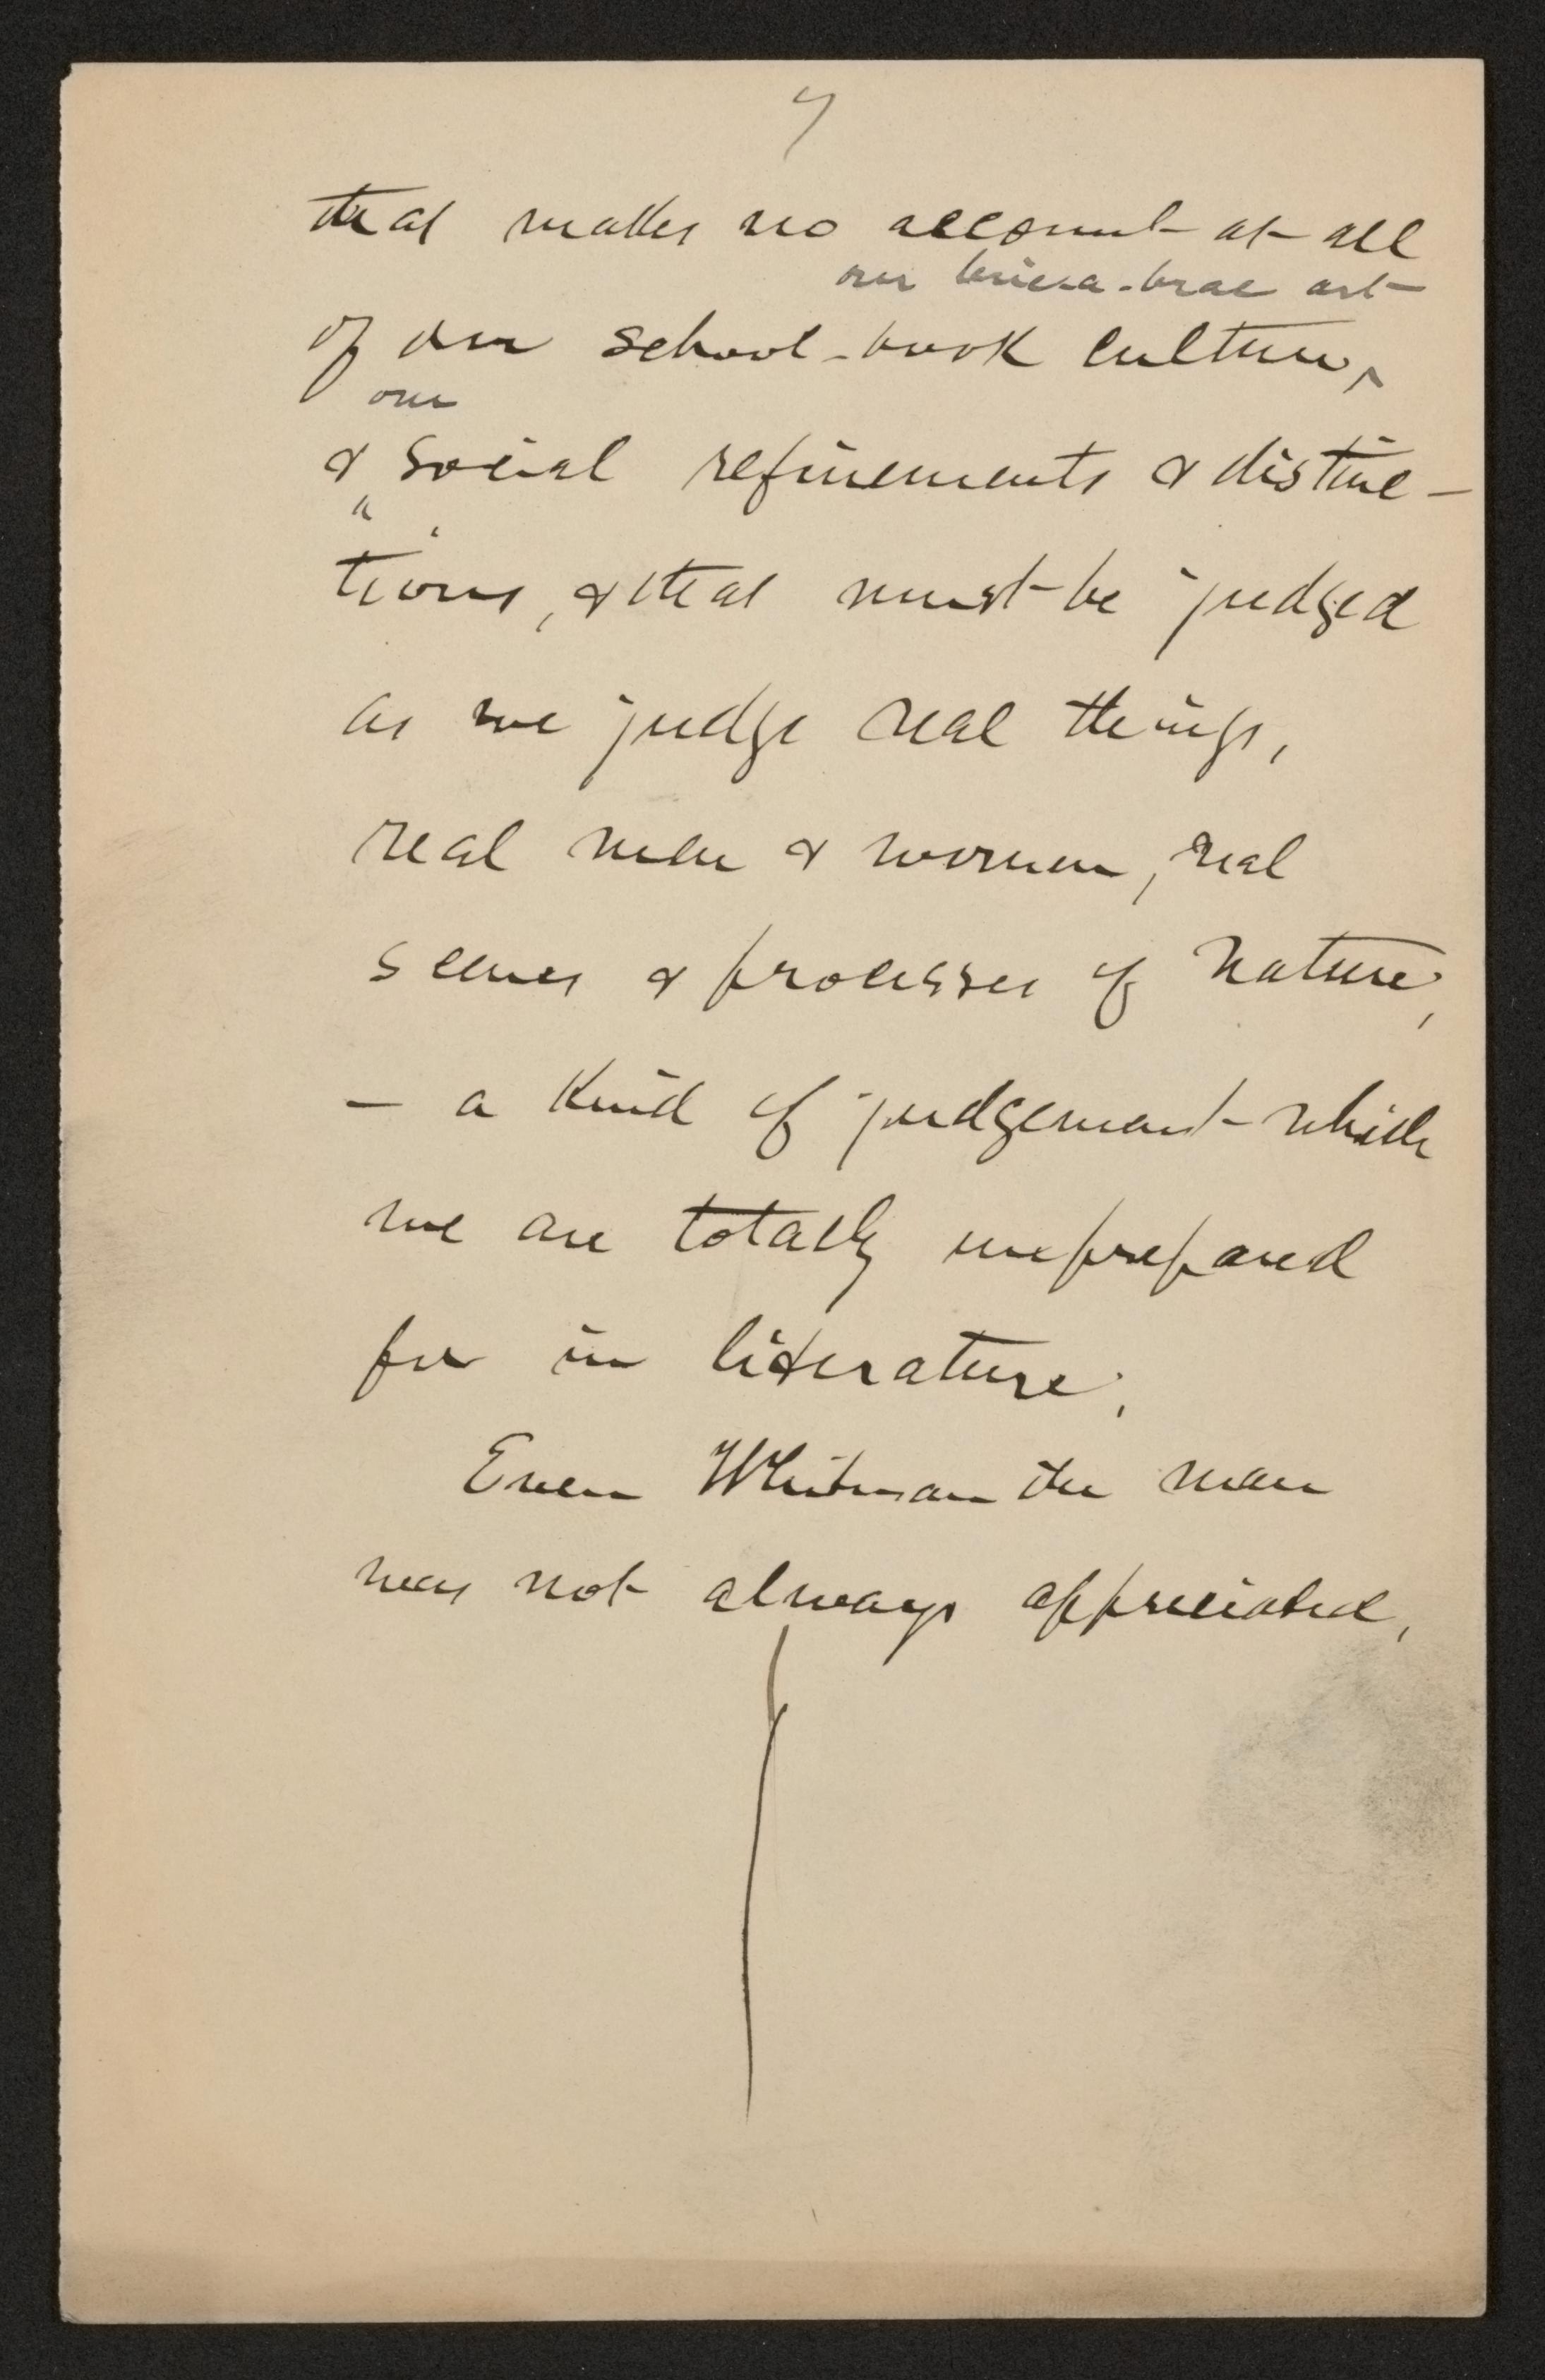 7
that makes no account at all
our bric-a-brac art
of our school-book culture,
our
& social refinements & distinc-
tions, & that must be judged
as we judge real things,
real men & women, real
scenes & processes of Nature,
— a kind of judgement which
we are totally unprepared
for in literature.
Even Whitman the man
was not always appreciated,